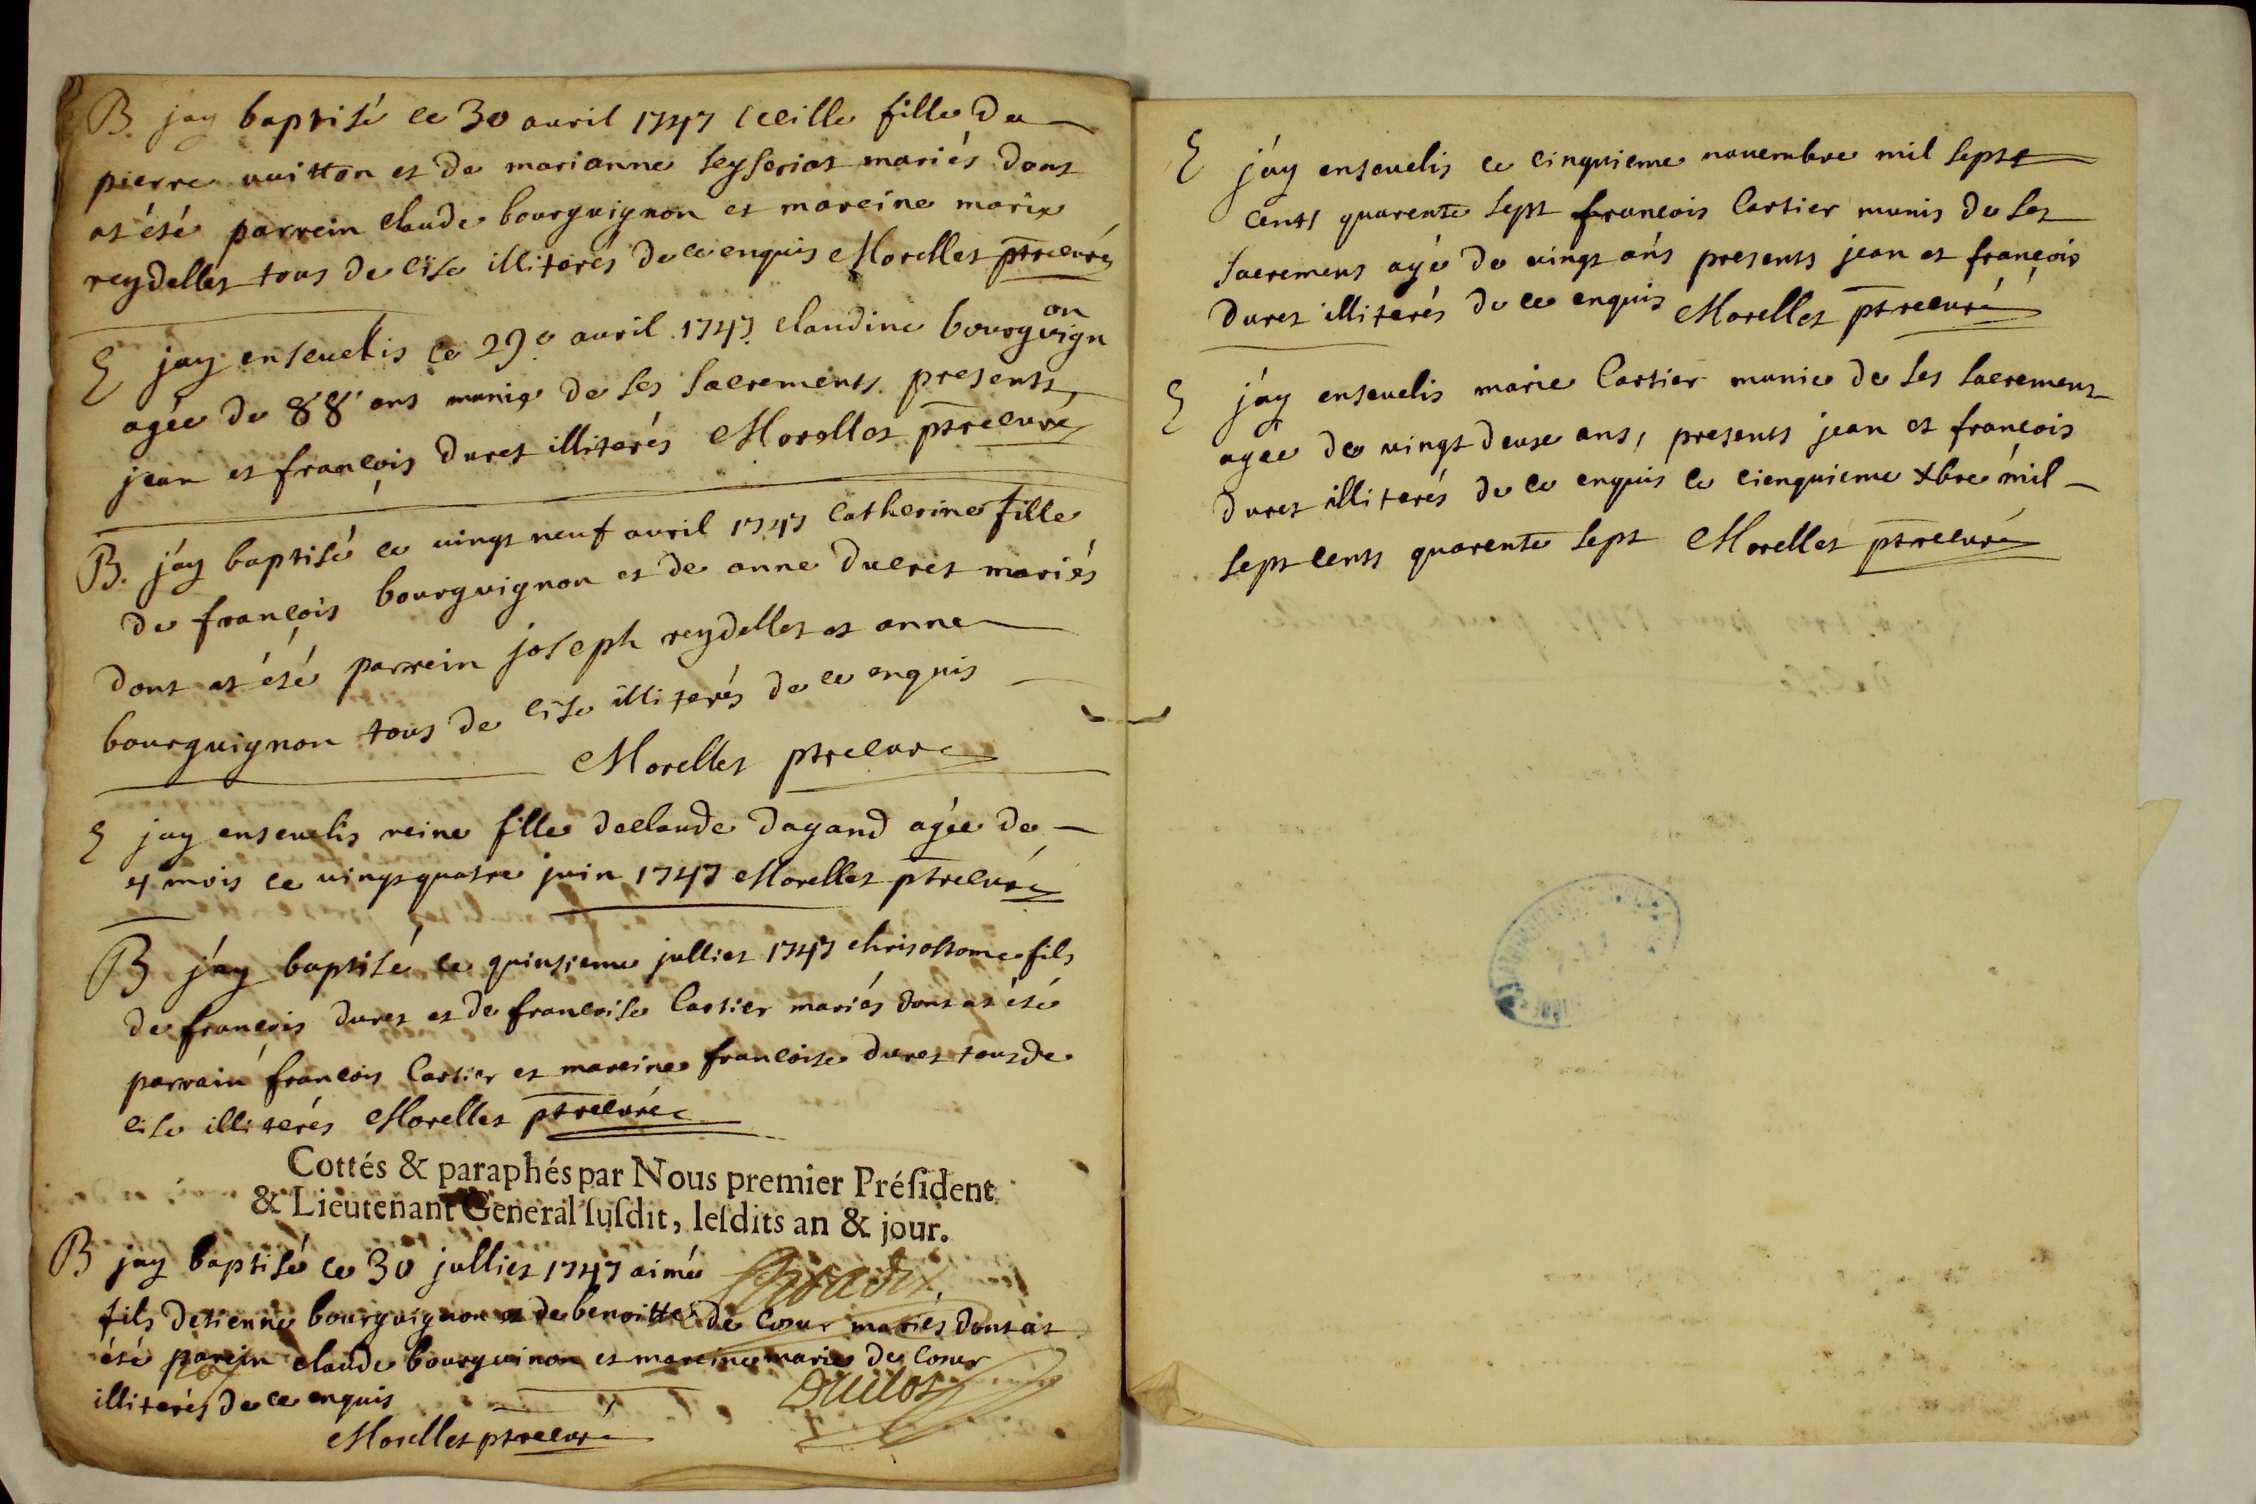 B. jay baptisé ce 30 avril 1747 Cecille fille de
pierre vuitton et de marianne seysoriat mariés dont
at été parrein claude bourguignon et mareine marie
reydellet tous de cise illiterés de ce enquis Morellet ptre curé
E jay ensevelis ce 29e avril 1747 claudine bourguign
on
agée de 88 ans munie de ses sacrements presents
jean et françois duret illiterés Morellet ptre curé
B. jáy baptisé ce vingt neuf avril 1747 catherine fille
de françois bourguignon et de anne ducret mariés
dont at été parrein joseph reydellet et anne
bourguignon tous de cise illiterés de ce enquis
Morellet ptre curé
E jay ensevelis reine fille declaude dagand agée de
4 mois ce vingt quatre juin 1747 Morellet ptre curé
B j'ay baptisé ce quinzieme julliet 1747 chrisostome fils
de françois duret et de francoise Cartier mariés dont at été
parrain françois Cartier et mareine francoise duret tous de
cise illiterés Morellet ptre curé
Cottés & paraphés par Nous premier Préſident
& Lieutenant General ſuſdit, leſdits an & jour.
B jay baptisé ce 30 julliet 1747 aimé
fils detienne bourguignon et de benoitte de Cœur mariés dont at
été parein claude bourguinon et mareine marie de Cœur
illiterés de ce enquis
Morellet ptre curé
E j'áy ensevelis ce cinquieme novembre mil sept
cents quarente sept francois Cartier munis de ses
sacremens agé de vingt ans presents jean et françois
duret illiterés de ce enquis Morellet ptre curé
E j'áy ensevelis marie Cartier munie de ses sacremens
agée de vingt deuse ans, presents jean et francois
duret illiterés de ce enquis ce cienquieme xbre mil
sept cents quarente sept Morellet ptre curé